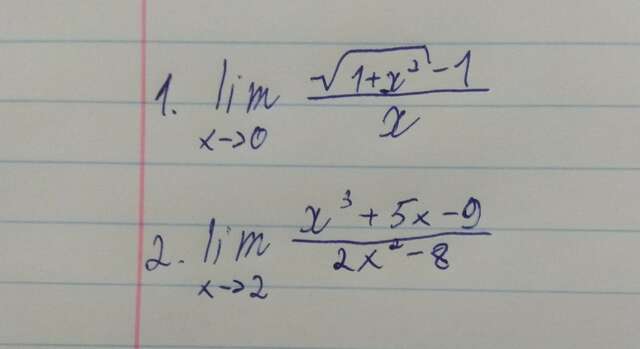 1. lim x→0 (√(1+x²) - 1) / x
2. lim x→2 (x³ + 5x - 9) / (2x² - 8)